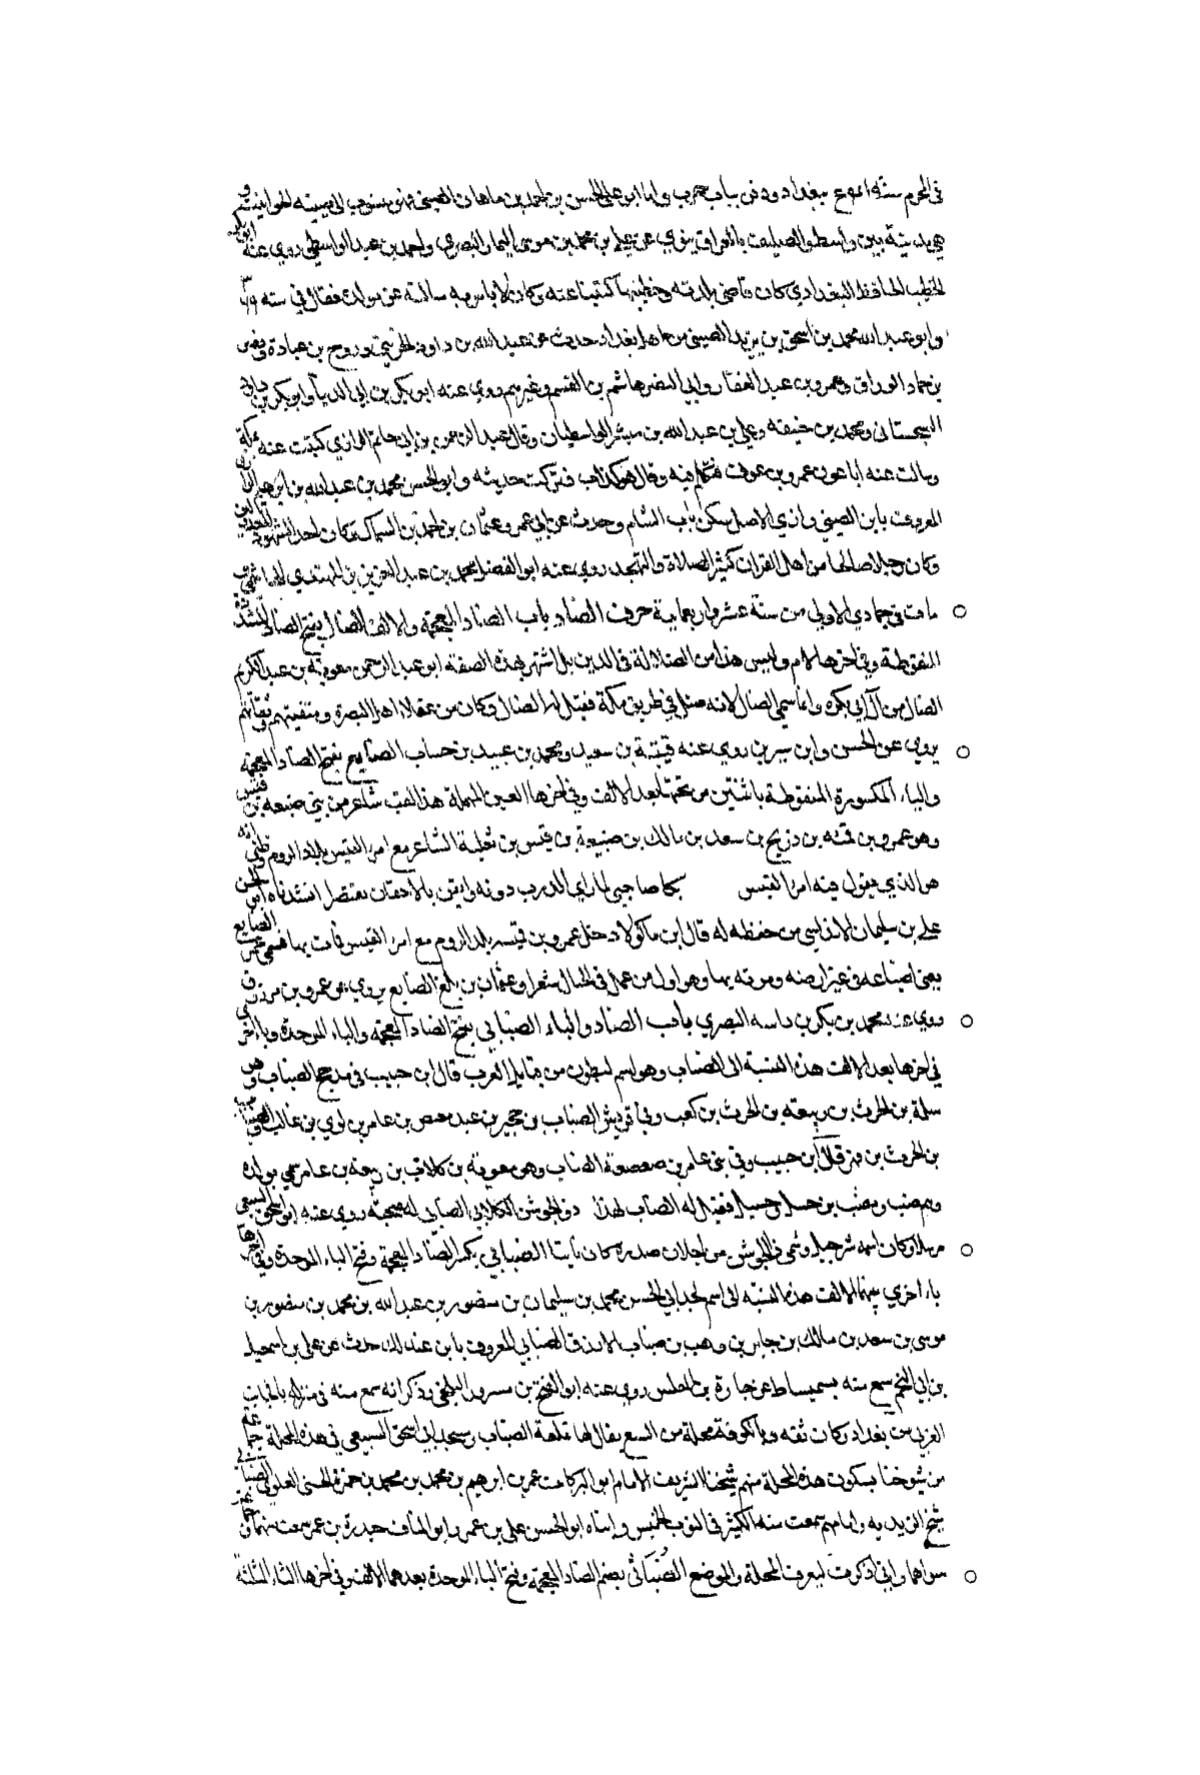 في المحرم سنة بغداد ودفن بباب حرب واما ابو علي الحسن بن احمد بن ماهان الصيني فهو منسوب الى صينية الحوانيت
هي مدينة بين واسط والصليق بالعراق يروي عن علي بن محمد بن موسى التمار البصري واحمد بن عبيد الواسطي روي عنه ابو بكر
الخطيب الحافظ البغدادي كان قاضي بلدته وخطيبها كتبنا عنه وكان لا باس به سالته عن مولده فقال في سنة
وابو عبد الله محمد بن اسحق بن يزيد الصيني من اهل بغداد حدث عن عبد الله بن داود الخريبي وروح بن عبادة ونصر
بن حماد الوراق وعمرو بن عبد الغفار وابي النضر هاشم بن القسم وغيرهم روي عنه ابو بكر بن ابي الدنيا وابو بكر بن ابي داود
السجستاني ومحمد بن حنيفه وعلي بن عبد الله بن مبشر الواسطيان وقال عبد الرحمن بن ابي حاتم الرازي كتبت عنه بمكة
وسالت عنه ابا عون عمرو بن عون فتكلم فيه وقال هو كذاب فتركت حديثه وابو الحسن محمد بن عبد الله بن ابرهيم
المعروف بابن الصيني رازي الاصل سكن باب الشام وحدث عن ابي عمرو عثمان بن احمد بن السماك وكان احد الشهود المعدلين
وكان رجلا صالحا من اهل القران كثير الصلاة والتهجد روي عنه ابو الفضل محمد بن عبد العزيز بن المهتدي الهاشمي
مات في جمادي الاولى من سنة عشر واربعماية حرف الضاد باب الضاد المعجمة والالف الضال بفتح الضاد المشددة
المنقوطة وفي اخرها لام وليس هذا من الضلالة في الدين بل اشتهر بهذه الصفه ابو عبد الرحمن معوية بن عبد الكريم
الضال من آل ابي بكرة وانما سمي الضال لانه ضل في طريق مكة فقيل له الضال وكان من عقلاء اهل البصرة ومتقنيهم وثقاتهم
يروي عن الحسن وابن سيرين روي عنه قتيبة بن سعيد ومحمد بن عبيد بن حساب الضايع بفتح الضاد المعجمة
والياء المكسورة المنقوطة باثنتين من تحتها بعد الالف وفي اخرها العين المهملة هذا لقب شاعر من بني ضبيعه بن قيس
وهو عمرو بن قميه بن ذريح بن سعد بن مالك بن ضبيعة بن قيس بن ثعلبة الشاعر مع امرء القيس بلاد الروم وظني انه
هو الذي يقول فيه امرء القيس بكا صاحبي لما راي الدرب دونه وايقن بالاحقان بقيصر انشدناه ابو الحسن
علي بن سليمان من حفظه له قال ابن ماكولا دخل عمرو بن قميه بلد الروم مع امرء القيس فمات بها فسمي عمرو الضايع
يعني لضياعه في غير ارضه وموته بها وهو اول من عمل في الخيال شعرا وعثمان بن بلج الضايع يروي عن عمرو بن مرزوق
روي عنه محمد بن بكر بن داسه البصري باب الضاد والباء الضبابي بفتح الضاد المعجمة والباء الموحدة وباء اخرى
في اخرها بعد الالف هذه النسبة الى الضباب وهو اسم لبطون من قبايل العرب قال ابن حبيب في مذحج الضباب وهو
سلمة بن الحرث بن ربيعه بن الحرث بن كعب وفي قريش الضباب بن حجير بن عبد معيص بن عامر بن لوي بن غالب
بن الحرث بن فهر قال ابن حبيب وفي بني عامر بن صعصعة الضباب وهو معوية بن كلاب بن ربيعة بن عامر سمي بولده
وهم ضب ومضب بن حسل وحسيل فقيل له الضباب لهذا ذو الجوشن الكلابي الضبابي له صحبته روي عنه ابو اسحق السبيعي
مرسلا وكان اسمه شرحبيل وسمي ذا الجوشن من اجل ان صدره كان ناتئا الضبابي بكسر الضاد المعجمة وفتح الباء الموحدة وفي اخرها
باء اخري بينهما الالف هذه النسبة الى اسم لجد ابي الحسن محمد بن سليمان بن منصور بن عبد الله بن محمد بن منصور بن
موسى بن سعد بن مالك بن جابر بن وهب بن ضباب الازدي الضبابي المعروف بابن عندلك حدث عن علي بن اسمعيل
بن ابي النجم سمع منه بسميساط عن جبارة بن المغلس روي عنه ابو الفتح بن مسرور البلخي وذكر انه سمع منه في منزله بالجانب
الغربي من بغداد وكان ثقه وبالكوفة محلة من السبع يقال لها قلعة الضباب ومسجد ابي اسحق السبيعي في هذه المحلة جماعة
من شيوخنا يسكون هذه المحلة منهم شيخنا الشريف الامام ابو البركات عمر بن ابرهيم بن محمد بن محمد بن حمزة الحسني العلوي الضبابي
شيخ الزيديه وامامهم سمعت منه الكثير في النوب الخمس وابناه ابو الحسن علي بن عمر وابو المناقب حيدرة بن عمر سمعت منهما
سواهما وانما ذكرت ليعرف المحلة والموضع الضباثي بضم الضاد المعجمة وفتح الباء الموحدة بعدهما الالف وفي اخرها الثاء المثلثة